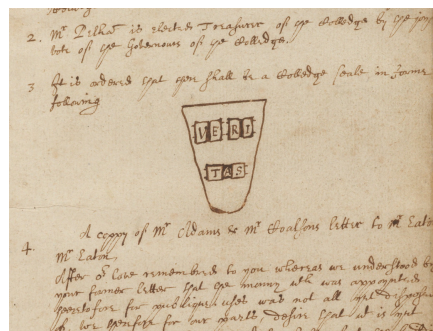 2. Mr Pelham is elected Treasurer of ye Colledge by ye joynt
vote of ye Governours of ye Colledge.
3 It is ordered that there shall be a Colledge seale in forme
following
VE RI
TAS
A coppy of Mr Adams & Mr Coalsons letter to Mr Eaton
4.
Mr Eaton,
After or love remembred to you whereas we understood by
your former letter that ye money wch was appoynted
heretofore for publique uses was not all yet disposed
we therefore for our parts, desire that it is yet